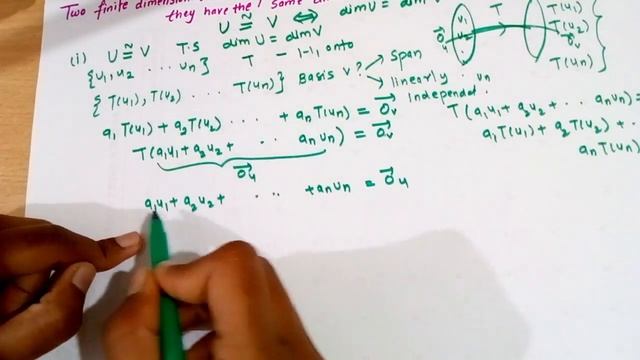 Two finite dimension
they have the same
U ≅ V ⟺ dim U = dim V
(i) U ≅ V T.S dim U = dim V
{u₁, u₂ ... uₙ} T - 1-1, onto
{T(u₁), T(u₂) ... T(uₙ)} Basis V? Span
linearly
Independent.
a₁T(u₁) + a₂T(u₂) ... + aₙT(uₙ) = 0⃗ᵥ
T(a₁u₁ + a₂u₂ + .. aₙuₙ) = 0⃗ᵥ
0⃗ᵤ
a₁u₁ + a₂u₂ + ... + aₙuₙ = 0⃗ᵤ
T
u₁
u₂
uₙ
0⃗ᵤ
T(u₁)
T(u₂)
0⃗ᵥ
T(uₙ)
T(a₁u₁ + a₂u₂ + .. aₙuₙ) =
a₁T(u₁) + a₂T(u₂) + ..
aₙT(uₙ)